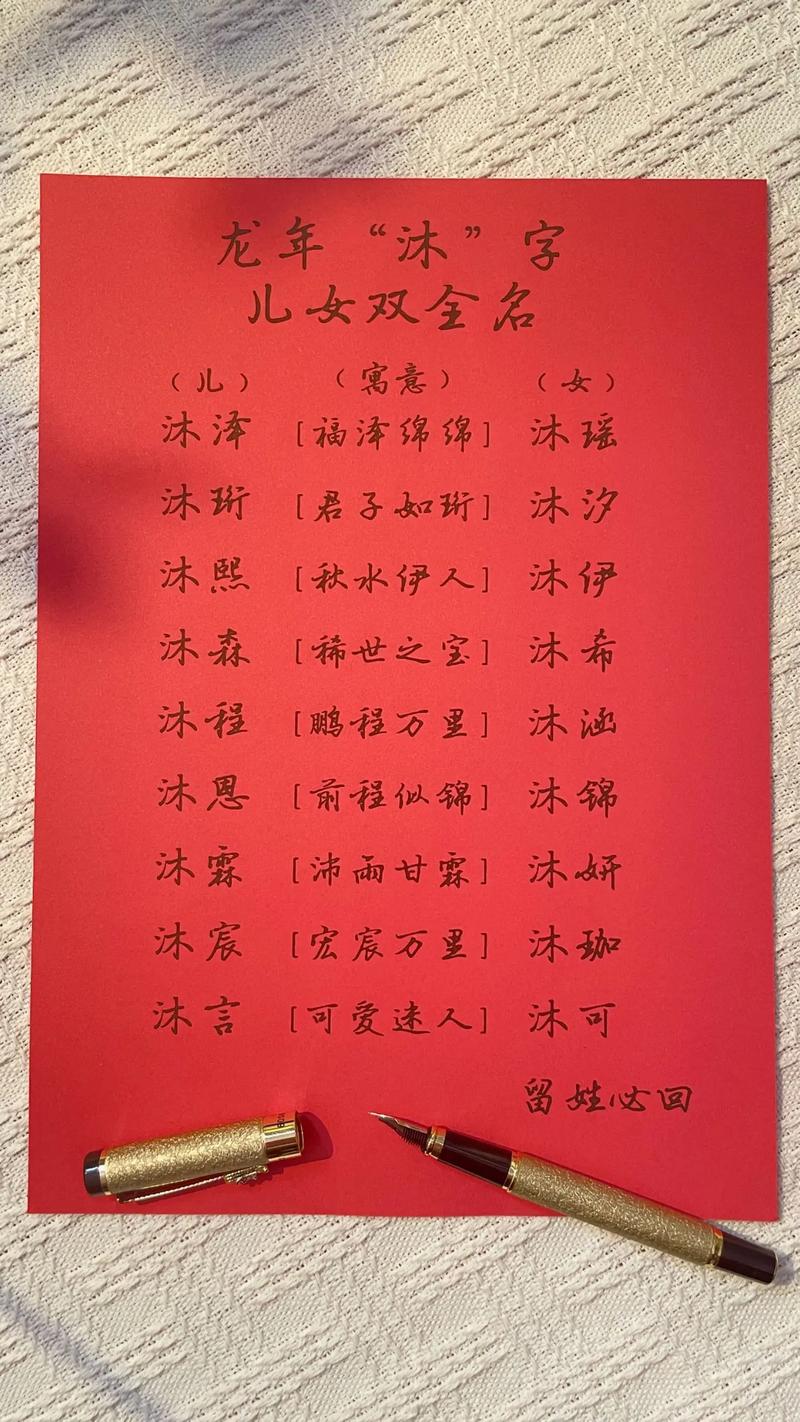 龙年“沐”字
儿女双全名
（儿） （寓意） （女）
沐泽 [福泽绵绵] 沐瑶
沐珩 [君子如珩] 沐汐
沐熙 [秋水伊人] 沐伊
沐森 [稀世之宝] 沐希
沐程 [鹏程万里] 沐涵
沐恩 [前程似锦] 沐锦
沐霖 [沛雨甘霖] 沐妍
沐宸 [宏宸万里] 沐珈
沐言 [可爱迷人] 沐可
留姓必回